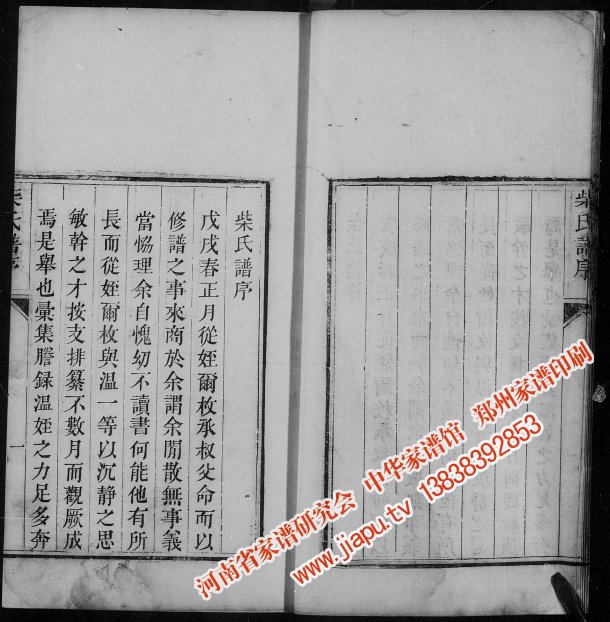 柴氏譜序
柴氏譜序
戊戌春正月從姪爾枚承叔父命而以
修譜之事來商於余謂余閒散無事義
當恊理余自愧幼不讀書何能他有所
長而從姪爾枚與温一等以沉静之思
敏幹之才按支排纂不數月而觀厥成
焉是舉也彙集謄録温姪之力足多奔
柴氏譜序
一
河南省家谱研究会 中华家谱馆 郑州家谱印刷
www.jiapu.tv 13838392853